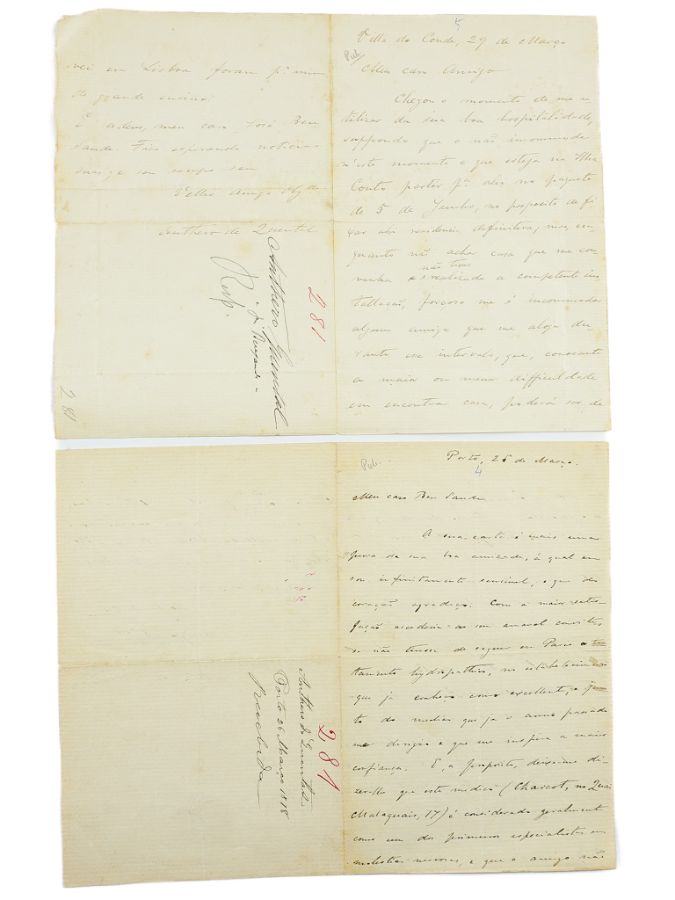 5
Villa do Conde, 29 de Março
Pub.
Meu caro Amigo
Chegou o momento de me u-
tilizar da sua boa hospitalidade,
suppondo que o não incommoda
n'este momento e que esteja na
Conto partir pª ahi no paquete
de 5 de Junho, no proposito de fi-
xar ahi residencia definitiva, mas, em-
quanto não achar casa que me con-
venha e não tiver realizado a competente ins-
tallação, forçoso me é incommodar
algum amigo que me aloje du-
rante esse intervalo, que, consoante
a maior ou menor difficuldade
em encontrar casa, poderá ser de
em Lisboa foram pª mim
de grande ensino.
E adeus, meu caro José Ben
Saude. Fico esperando noticias
suas, e sou sempre seu
Velho amigo
Anthero de Quental
Anthero Quental
Resp.
281
281
Pub.
Porto, 25 de Março.
4
Meu caro Ben Saude
A sua carta é mais uma
prova da sua boa amizade, á qual eu
sou infinitamente sensivel, e que do
coração agradeço. Com a maior satis-
fação accederia ao seu amavel convite,
se não tivesse de seguir em Paris o tra-
tamento hydropathico, no estabelecimento
que já conheço como excellente, e
do medico que já o anno passado
me dirigiu e que me inspira a maior
confiança. E, a proposito, deixe-me di-
zer-lhe que este medico (Charcot, no Quai
Malaquais, 17) é considerado geralmente
como um dos primeiros especialistas em
molestias nervosas, e que o amigo não
Anthero de Quental
Porto 26 Março 1878
Recebida
281